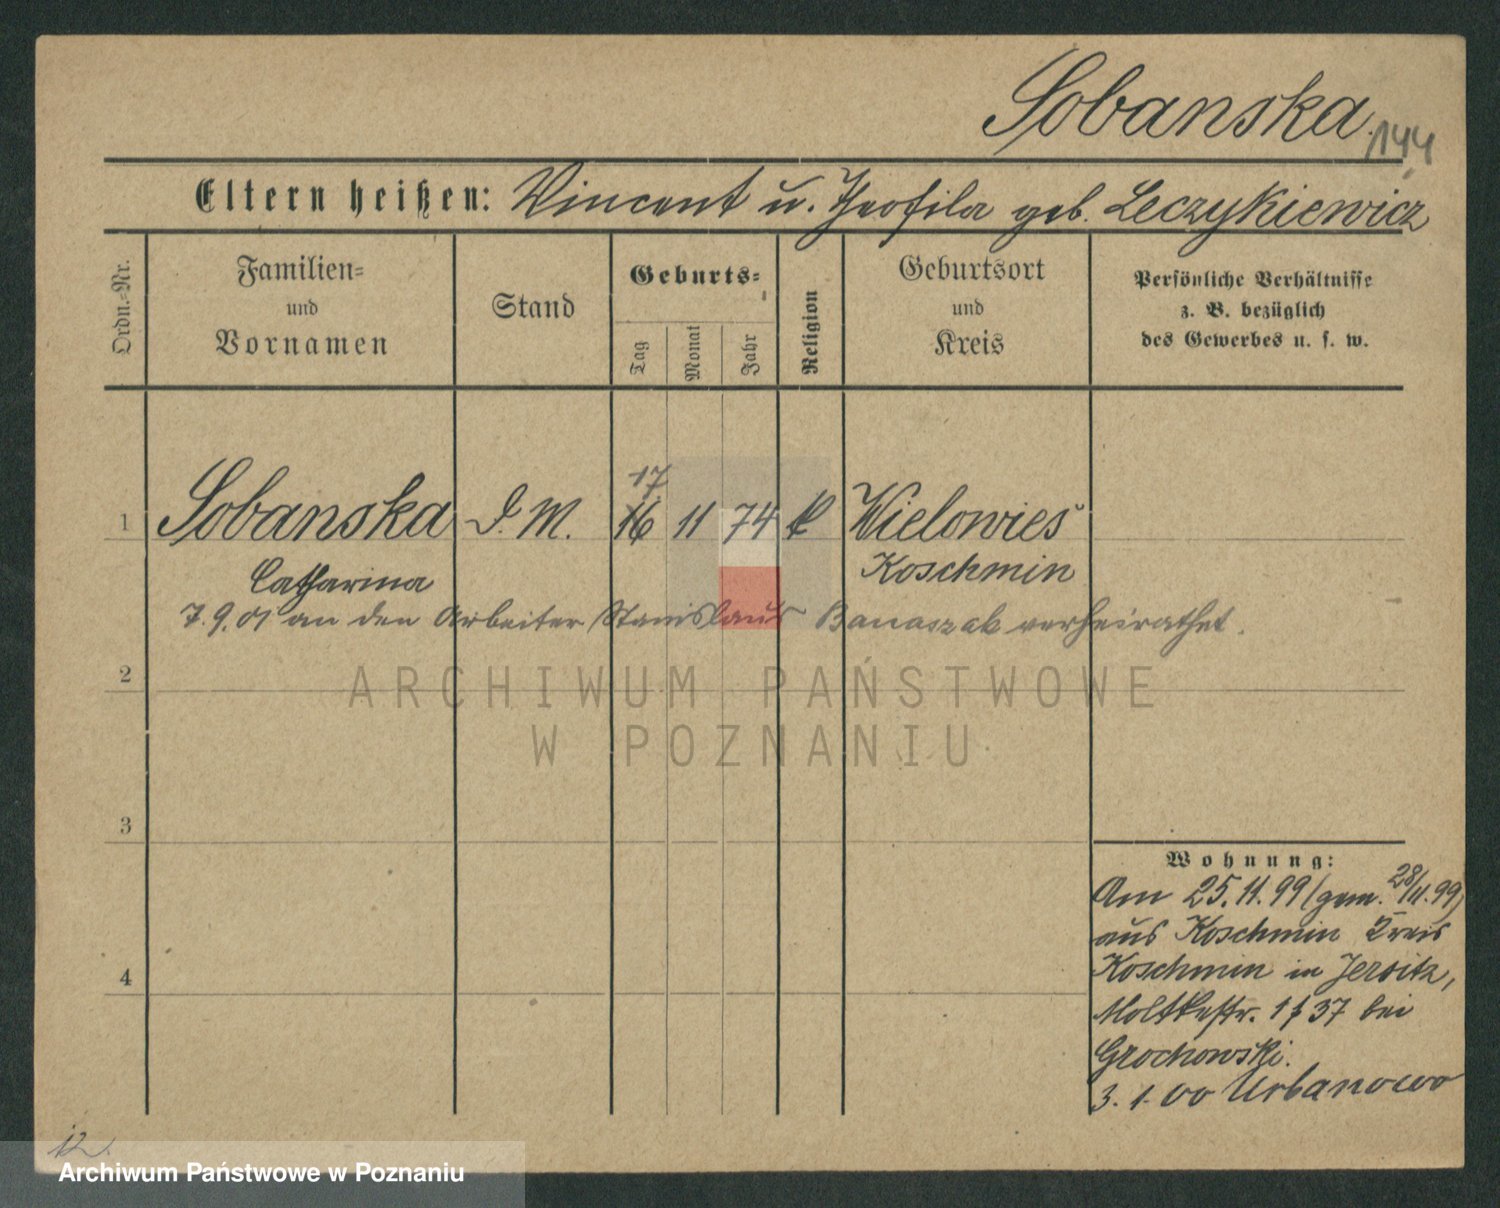 Sobanska.
144
Eltern heißen: Vincent u. Theofila geb. Leczykiewicz
Ordn.-Nr.
Familien-
und
Vornamen
Stand
Geburts-
Tag
Monat
Jahr
Religion
Geburtsort
und
Kreis
Persönliche Verhältnisse
z. B. bezüglich
des Gewerbes u. s. w.
17
1 Sobanska D. M. 16 11 74 k Wielowies
Catharina Koschmin
7.9.01 an den Arbeiter Stanislaus Banaszak verheirathet.
2
ARCHIWUM PAŃSTWOWE
W POZNANIU
3
Wohnung:
Am 25.11.99 (gem. 28/11.99)
aus Koschmin Kreis
4
Koschmin in Jersitz,
Moltkestr. 37 bei
Grochowski.
3. 1. 00 Urbanowo
12.
Archiwum Państwowe w Poznaniu